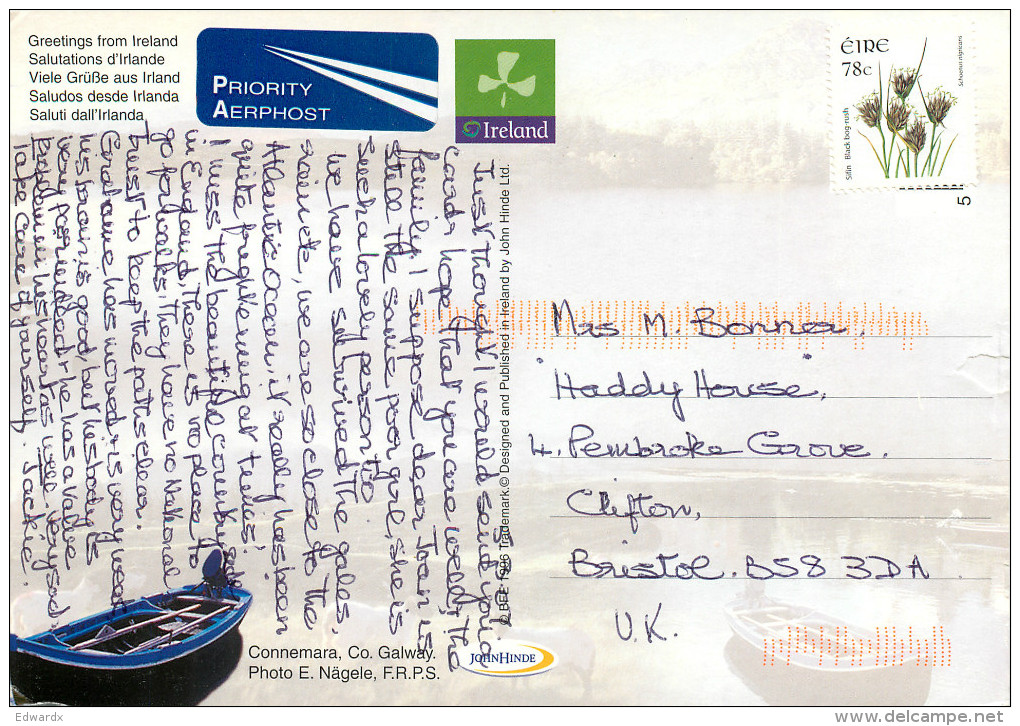 Greetings from Ireland
Salutations d'Irlande
Viele Grüße aus Irland
Saludos desde Irlanda
Saluti dall'Irlanda
PRIORITY
AERPHOST
Ireland
ÉIRE
78c
Sifín Black bog-rush
Schoenus nigricans
5
Just thought I would send you a
card, hope that you are well, & the
family, I suppose dear Joan is
still the same poor girl, she is
such a lovely person too
We have survived the gales,
since we are so close to the
Atlantic Ocean, it really has been
quite frightening at times!
I miss the beautiful countryside
in England, there is no place to
go for walks, they have no National
Trust to keep the paths clear.
Grahame has moved & is very weak
his brain is good, but his body is
very poor indeed. he has a valve
in his heart as well, very sad.
Take care of yourself. Jackie.
© Designed and Published in Ireland by John Hinde Ltd.
1996 Trademark.
Mrs M. Bonner.
Haddy House,
4. Pembroke Grove.
Clifton,
Bristol. BS8 3DA.
U.K.
Connemara, Co. Galway.
Photo E. Nägele, F.R.P.S.
JOHN HINDE
Edwardx
www.delcampe.net